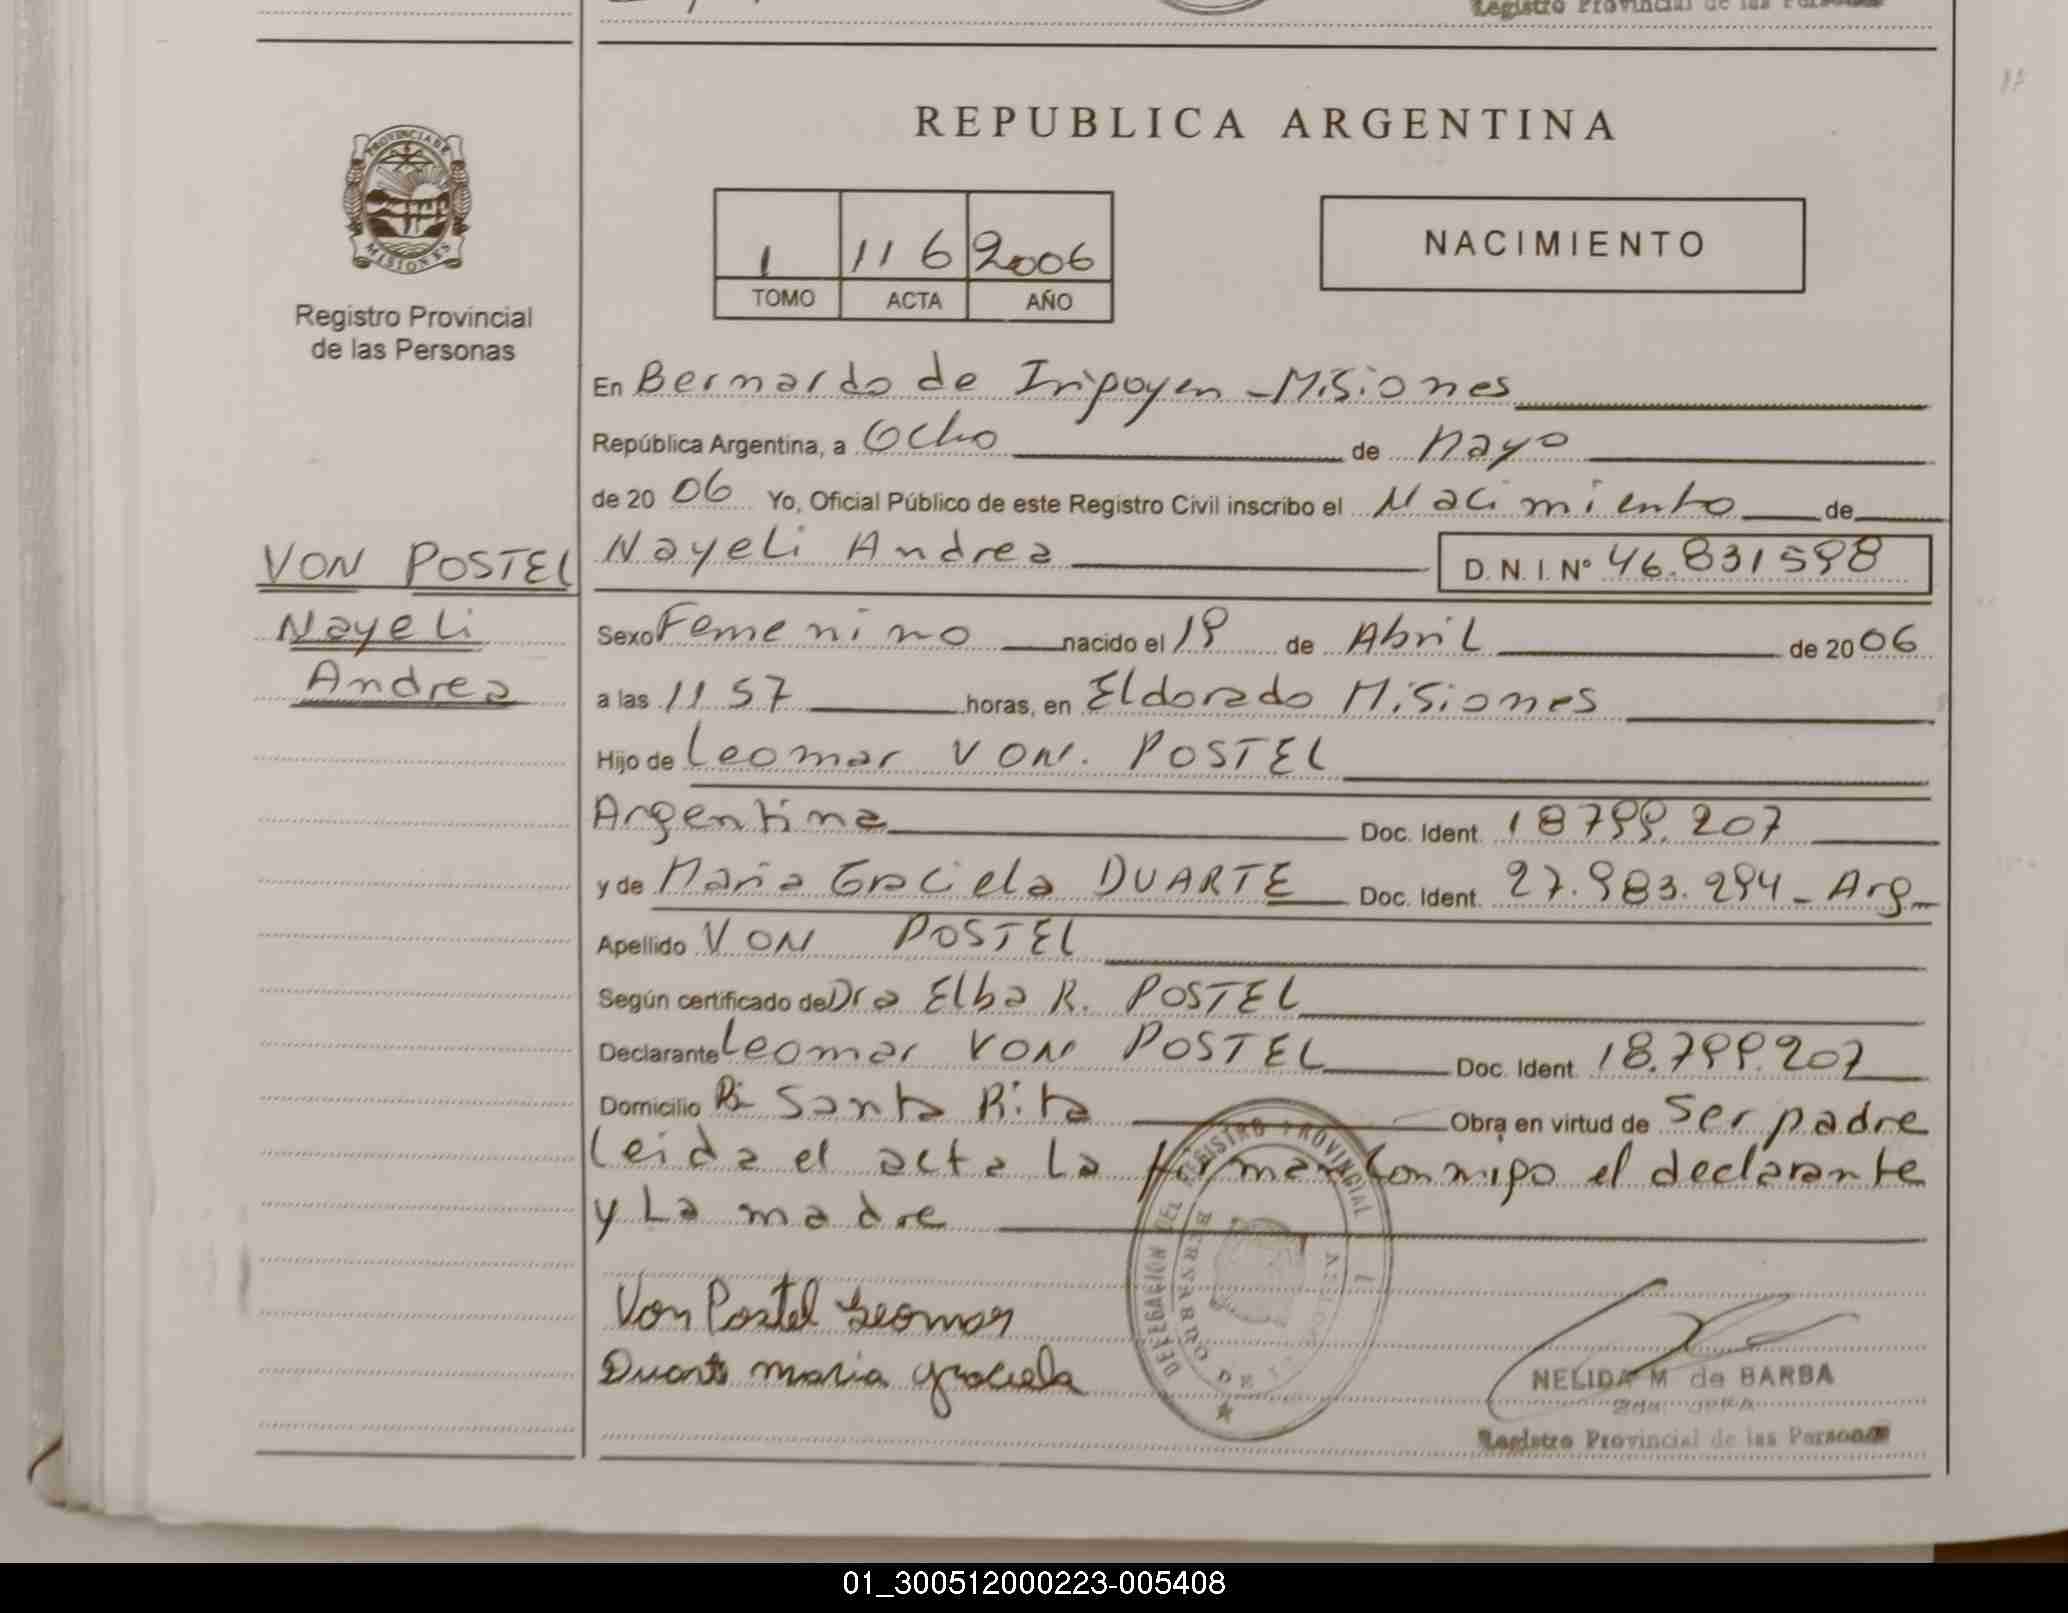 Registro Provincial de las Personas
PROVINCIA DE
MISIONES
Registro Provincial
de las Personas
REPUBLICA ARGENTINA
1 116 2006
TOMO ACTA AÑO
NACIMIENTO
En Bernardo de Iripoyen - Misiones
República Argentina, a Ocho de Mayo
de 20 06 Yo, Oficial Público de este Registro Civil inscribo el Nacimiento de
VON POSTEL
Nayeli
Andrea
Nayeli Andrea D. N. I. Nº 46.831598
Sexo Femenino nacido el 19 de Abril de 20 06
a las 11 57 horas, en Eldorado Misiones
Hijo de Leomar VON. POSTEL
Argentina Doc. Ident. 18799.207
y de Maria Graciela DUARTE Doc. Ident. 27.983.294 - Arg
Apellido VON POSTEL
Según certificado de Dra Elba R. POSTEL
Declarante Leomar VON POSTEL Doc. Ident. 18.799.207
Domicilio Santa Rita Obra en virtud de Ser padre
Leida el acta La firman Conmigo el declarante
y La madre
Von Postel Leomar
Duarte maria graciela
DELEGACION DEL REGISTRO PROVINCIAL
BERNARDO DE
NELIDA M de BARBA
Registro Provincial de las Personas
01_300512000223-005408